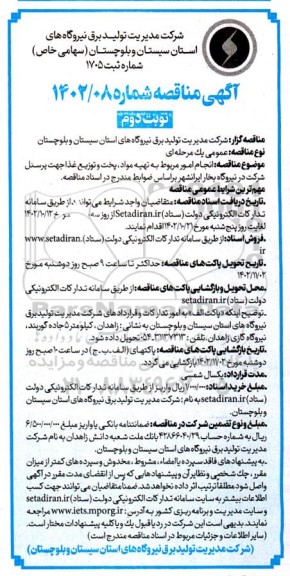 شرکت مدیریت تولید برق نیروگاه های
استان سیستان و بلوچستان (سهامی خاص)
شماره ثبت ۱۷۰۵
آگهی مناقصه شماره ۱۴۰۲/۰۸
نوبت دوم
مناقصه گزار: شرکت مدیریت تولید برق نیروگاه های استان سیستان و بلوچستان
نوع مناقصه: عمومی یک مرحله ای
موضوع مناقصه: انجام امور مربوط به تهیه مواد، پخت و توزیع غذا جهت پرسنل
شرکت در نیروگاه بخار ایرانشهر براساس ضوابط مندرج در اسناد مناقصه.
مهم ترین شرایط عمومی مناقصه
تاریخ دریافت اسناد مناقصه: متقاضیان واجد شرایط می توانند از طریق سامانه
تدارکات الکترونیکی دولت (ستاد) Setadiran.ir از روز سه
لغایت روز پنج شنبه مورخ ۱۴۰۲/۱۰/۲۱ اقدام نمایند.
فروش اسناد: از طریق سامانه تدارکات الکترونیکی دولت (ستاد) www.setadiran.
ir
تاریخ تحویل پاکت های مناقصه: حداکثر تا ساعت ۹ صبح روز دوشنبه مورخ
۱۴۰۲/۱۱/۰۲
محل تحویل و بازگشایی پاکت های مناقصه: از طریق سامانه تدارکات الکترونیکی
دولت (ستاد) setadiran.ir
توضیح اینکه «پاکت الف» به امور تدارکات و قراردادهای شرکت مدیریت تولید برق
نیروگاه های استان سیستان و بلوچستان به نشانی: زاهدان، کیلومتر ۵ جاده گوربند،
نیروگاه گازی زاهدان، تلفن: ۰۵۴۳۱۱۳۷۳۱۳ تحویل داده شود.
تاریخ بازگشایی پاکت های مناقصه: پاکتهای (الف، ب، ج) در ساعت ۱۰ صبح روز
دوشنبه مورخ ۱۴۰۲/۱۱/۰۲ بازگشایی می گردد.
مدت قرارداد: یکسال شمسی
مبلغ خرید اسناد: ۷۰۰/۰۰۰ ریال واریز از طریق سامانه تدارکات الکترونیکی دولت
(ستاد) setadiran.ir به نام: شرکت مدیریت تولید برق نیروگاه های استان سیستان
و بلوچستان.
مبلغ و نوع تضمین شرکت در مناقصه: ضمانتنامه بانکی یا واریز مبلغ ۶/۵۰۰/۰۰۰/۰۰۰
ریال به شماره حساب ۴۲۸۶۶۰۴۰۲۹ بانک ملت شعبه دانش زاهدان به نام شرکت
مدیریت تولید برق نیروگاه های استان سیستان و بلوچستان.
به پیشنهادهای فاقد سپرده یا امضاء، مشروط، مخدوش و سپرده های کمتر از میزان
مقرر، چک شخصی و نظایر آن و پیشنهادهایی که پس از انقضای مدت مقرر در آگهی
واصل شود مطلقا ترتیب اثر داده نخواهد شد. ضمنا متقاضیان می توانند جهت کسب
اطلاعات بیشتر به سایت سامانه تدارکات الکترونیکی دولت (ستاد) setadiran.ir
و سایت مدیریت و برنامه ریزی کشور به آدرس: www.iets.mporg.ir مراجعه
نمایند. بدیهی است این شرکت در رد یا قبول یک یا کلیه پیشنهادات مختار است.
(سایر اطلاعات و جزئیات مربوط در اسناد مناقصه مندرج است)
(شرکت مدیریت تولید برق نیروگاه های استان سیستان و بلوچستان)